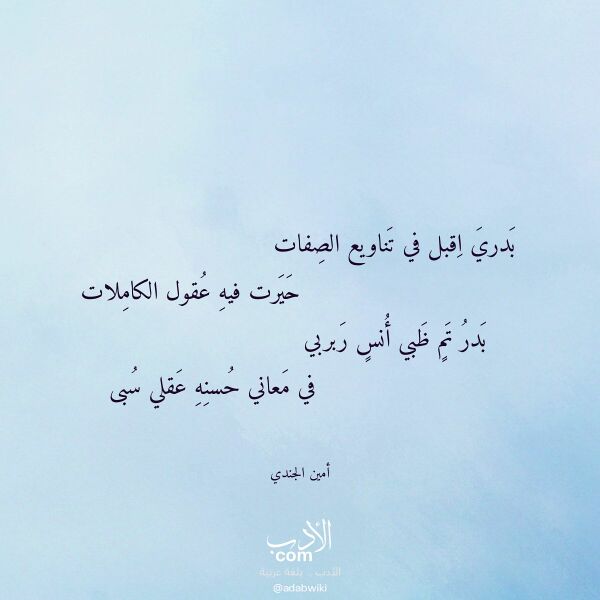 بَدريَ اِقبل في تَناويع الصِفات
حَيَرَت فيهِ عُقول الكامِلات
بَدرُ تَمٍ ظَبي أُنسٍ رَبربي
في مَعاني حُسنِهِ عَقلي سُبى
أمين الجندي
الأدب
com
الأدب .. بلغة عربية
@adabwiki